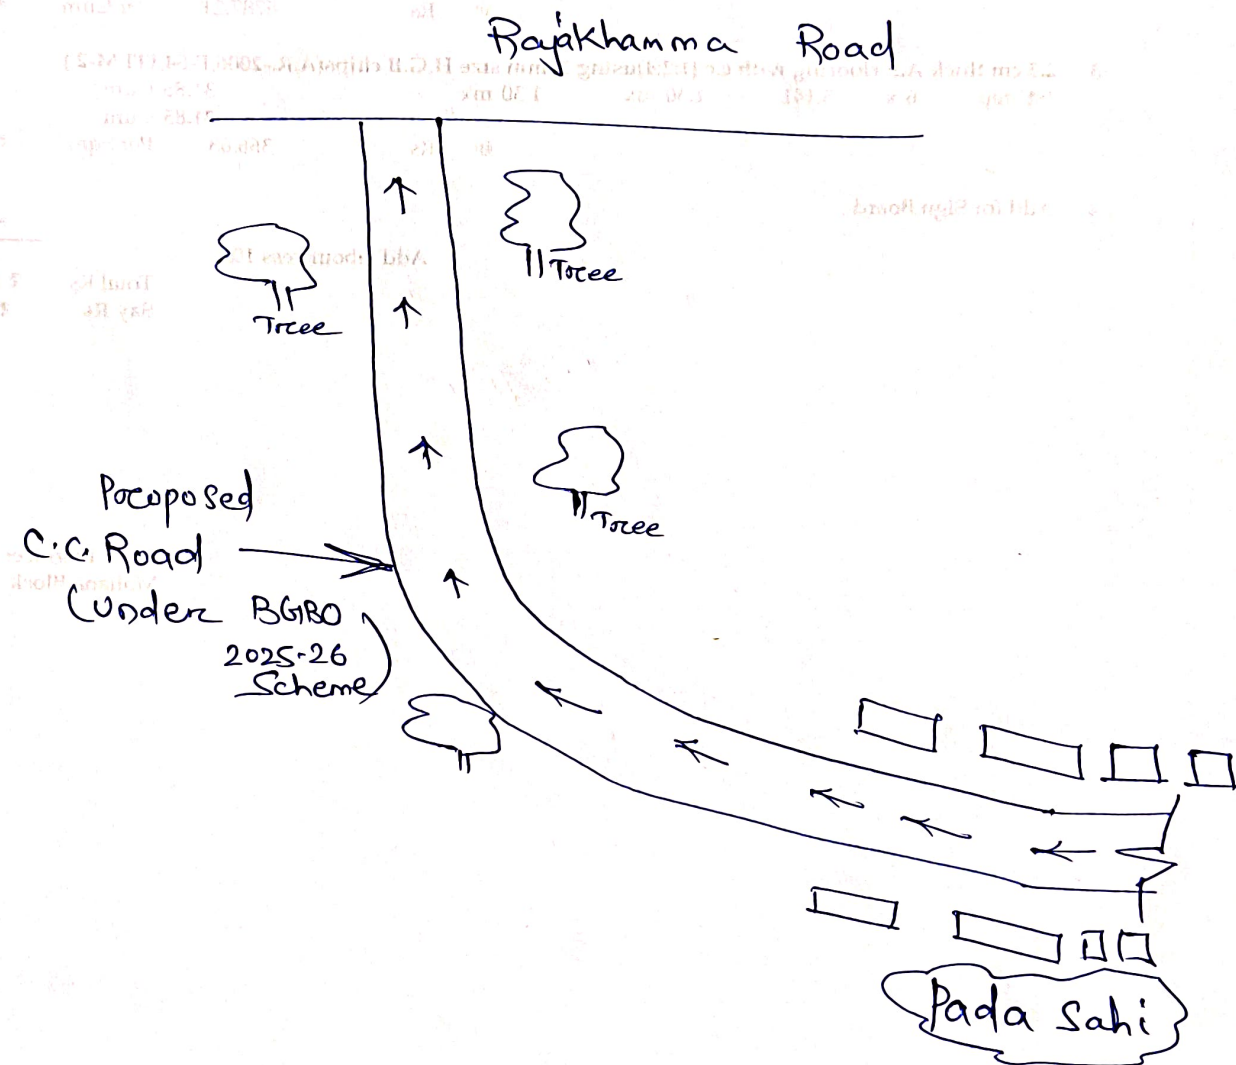 Rajakhamma Road
Tree
Tree
Tree
Proposed
C.C. Road
(Under BGBO
2025-26
Scheme)
Pada Sahi